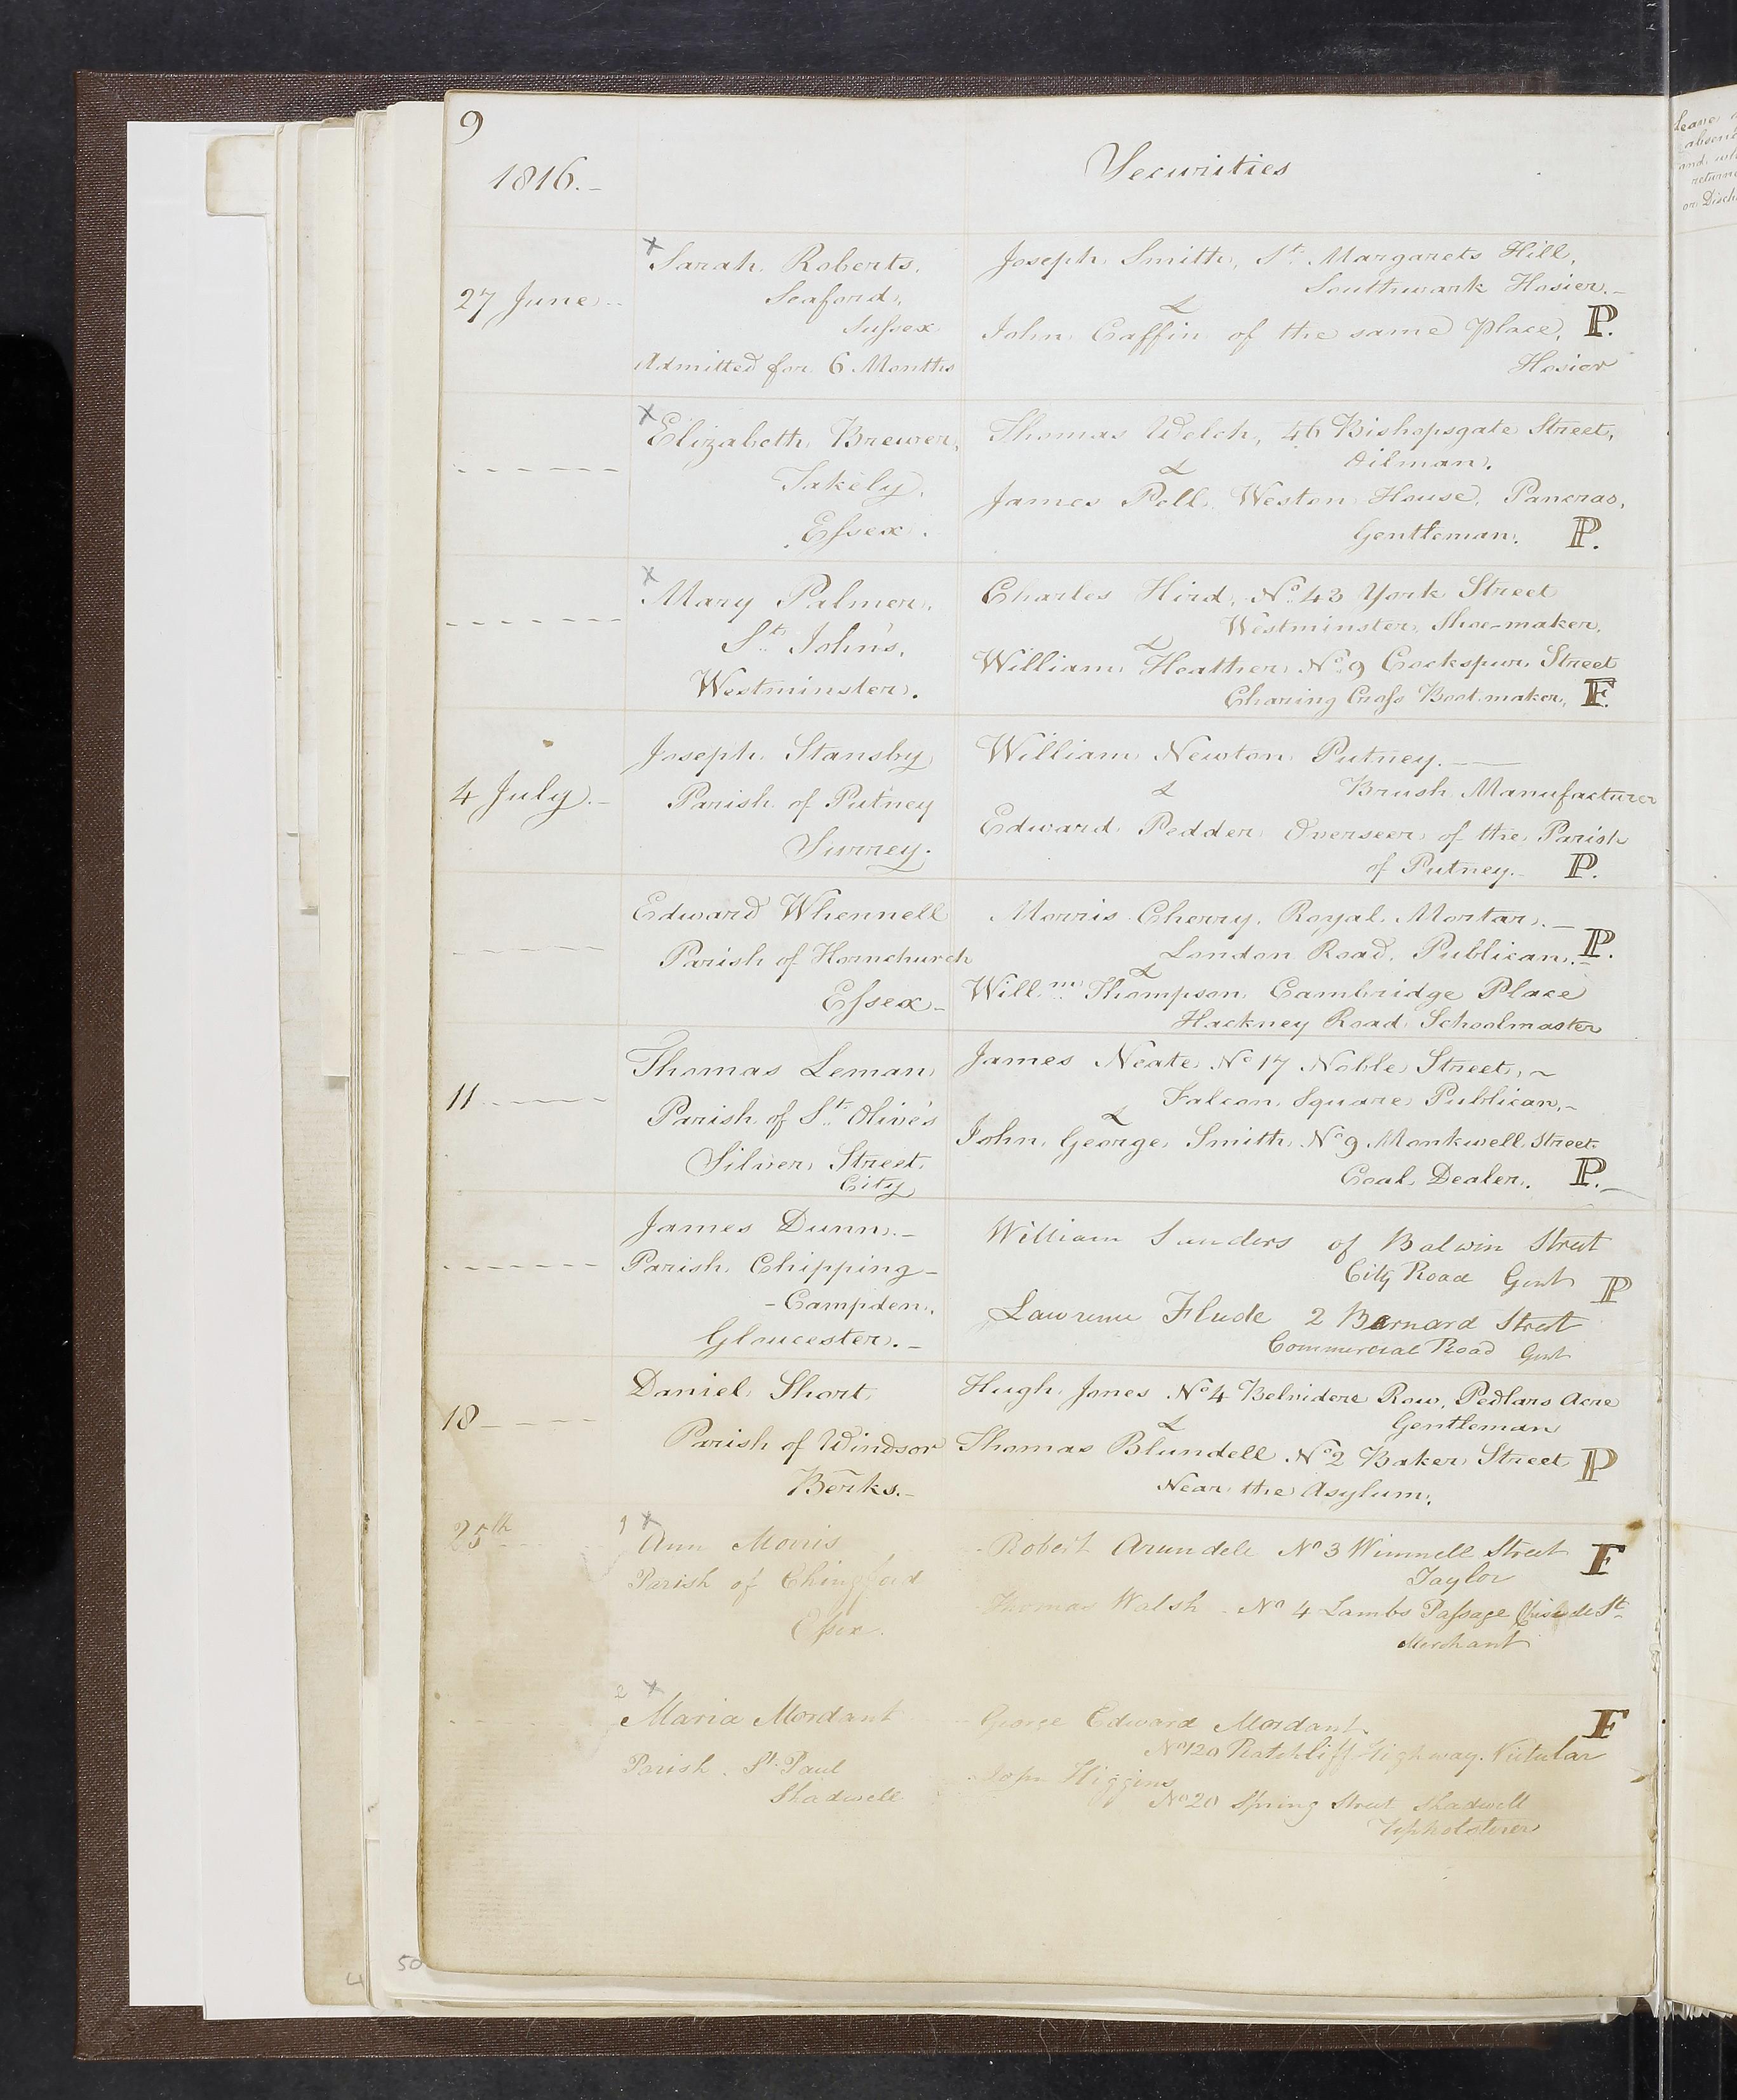 9
1816.-
Securities
27 June
x Sarah Roberts,
Seaford,
Sussex
Admitted for 6 Months
Joseph Smith, St. Margarets Hill,
Southwark Hosier.-
&
John Caffin of the same Place, P.
Hosier
x Elizabeth Brewer,
Takely,
Essex.
Thomas Welch, 46 Bishopsgate Street,
& Oilman.
James Pell Weston House, Pancras,
Gentleman. P.
x Mary Palmer,
St. John's,
Westminster.
Charles Hird, No. 43 York Street
Westminster, Shoe-maker,
&
William Heather No. 9 Cockspur Street
Charing Cross Bootmaker, F.
4 July.-
Joseph Stansby
Parish of Putney
Surrey.
William Newton Putney.
& Brush Manufacturer
Edward Pedder Overseer of the Parish
of Putney.- P.
Edward Whennell
Parish of Hornchurch
Essex-
Morris Cherry, Royal Mortar.-
London Road, Publican. P.
&
Willm. Thompson Cambridge Place
Hackney Road Schoolmaster
11
Thomas Leman
Parish of St. Olive's
Silver Street
City
James Neate No 17 Noble Street,
Falcon Square Publican,-
&
John George Smith No 9 Monkwell Street
Coal Dealer. P.
James Dunn.-
Parish Chipping-
-Campden,
Gloucester.-
William Sunders of Balwin Street
City Road Gent P
Lawrence Flude 2 Barnard Street
Commercial Road Gent
18
Daniel Short
Parish of Windsor
Berks.-
Hugh Jones No 4 Belvidere Row, Pedlars Acre
& Gentleman
Thomas Blundell No 2 Baker Street P
Near the Asylum.
25th
1 x Ann Morris
Parish of Chingford
Essex.
Robert Arundele No 3 Street F
Taylor
Thomas Walsh No 4 Lambs Passage St
Merchant
2 x Maria Mordant
Parish St. Paul
Shadwell
George Edward Mordant F
No 120 Ratcliff Highway. Victular
John Higgins
No 20 Spring Street Shadwell
Upholsterer
50
4
Leave
absen
and wh
return
or Disch